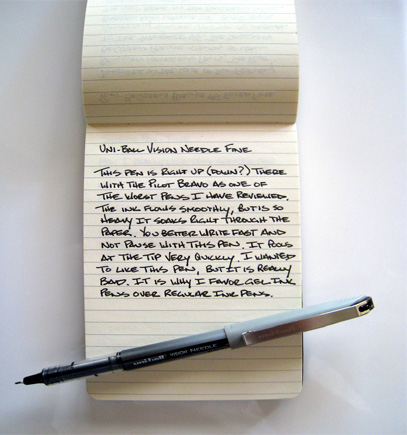 Uni-Ball Vision Needle Fine
This pen is right up (down?) there
with the Pilot Bravo as one of
the worst pens I have reviewed.
The ink flows smoothly, but is so
heavy it soaks right through the
paper. You better write fast and
not pause with this pen. It pools
at the tip very quickly. I wanted
to like this pen, but it is really
bad. It is why I favor gel ink
pens over regular ink pens.
uni-ball VISION NEEDLE